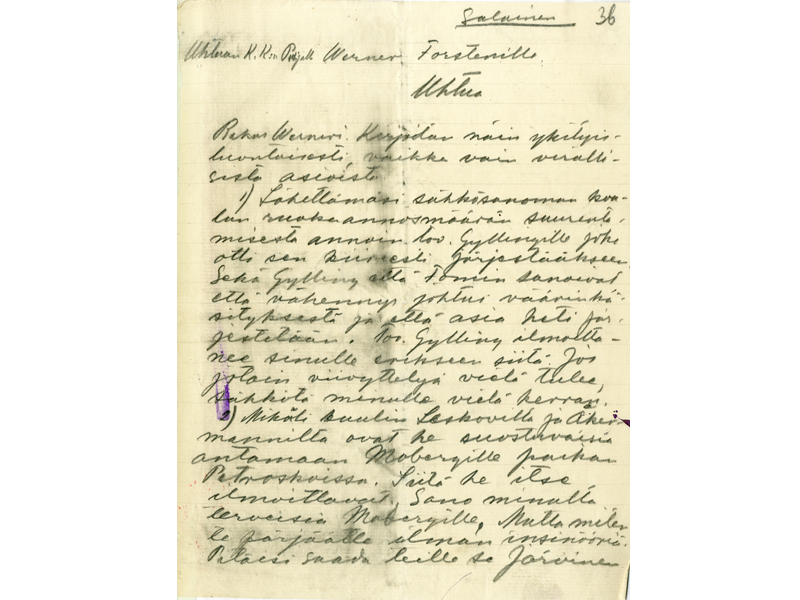 Salainen 36
Uhtuan K. Werner Forstenille.
Uhtua
Rakas Werneri. Kirjoitan näin yksityis-
luontoisesti, vaikka vain viralli-
sista asioista
1) Lähettämäsi sähkösanoman koulun
ruokaannosmäärän suurenta-
misesta annoin tov. Gyllingille joka
otti sen kiireesti järjestääkseen
Sekä Gylling että Fomin sanoivat
että vähennys johtui väärinkä-
sityksestä ja että asia heti jär-
jestetään. Tov. Gylling ilmoitta-
nee sinulle erikseen siitä. Jos
jotain viivyttelyä vielä tulee,
sähkötä minulle vielä kerran.
2) Mikäli kuulin Leskovilta ja Åker-
mannilta ovat he suostuvaisia
antamaan Mobergille paikan
Petroskoissa. Siitä he itse
ilmoittavat. Sano minulta
terveisiä Mobergille. Mutta miten
te pärjäätte ilman insinööriä.
Pitäisi saada teille se Järvinen